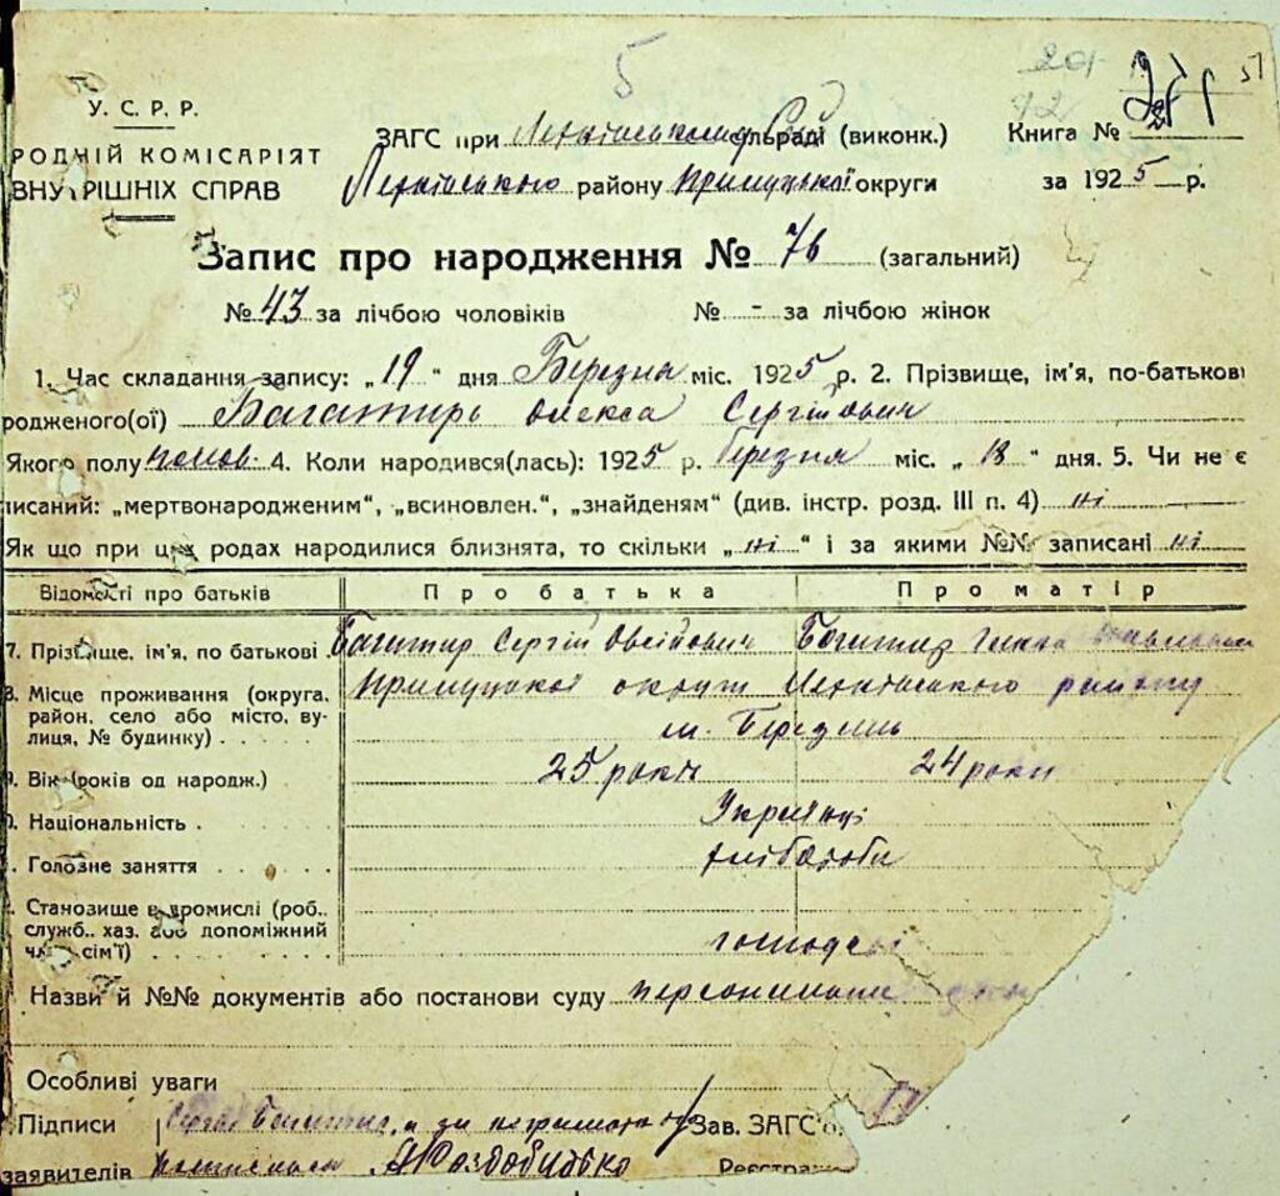 5
У. С. Р. Р.
РОДНІЙ КОМІСАРІЯТ
ВНУТРІШНІХ СПРАВ
ЗАГС при сельраді (виконк.)
району Прилуцької округи
Книга №
за 1925 р.
Запис про народження № 76 (загальний)
№ 43 за лічбою чоловіків № - за лічбою жінок
1. Час скла­дання запису: „19“ дня Березня міс. 1925 р. 2. Прізвище, ім'я, по-батькові
родженого(ої) Багатирь Олекса Сергійович
Якого полу чолов. 4. Коли народився(лась): 1925 р. березня міс. „18“ дня. 5. Чи не є
писаний: „мертвонародженим“, „всиновлен.“, „знайденям“ (див. інстр. розд. III п. 4) ні
Як що при цих родах народилися близнята, то скільки „ні“ і за якими №№ записані ні
Відомості про батьків Про батька Про матір
7. Прізвище, ім'я, по батькові Багатир Сергій Овсійович Багатир
8. Місце проживання (округа, район, село або місто, вулиця, № будинку) Прилуцької округи району
м. Березань
Вік (років од народж.) 25 роки 24 роки
Національність Українці
Головне заняття хлібороби
Становище в промислі (роб., служб., хаз. або допоміжний член сім'ї) господ
Назви й №№ документів або постанови суду
Особливі уваги
Підписи Сергій Багатир, а за Зав. ЗАГС'о
заявителів Реєстра